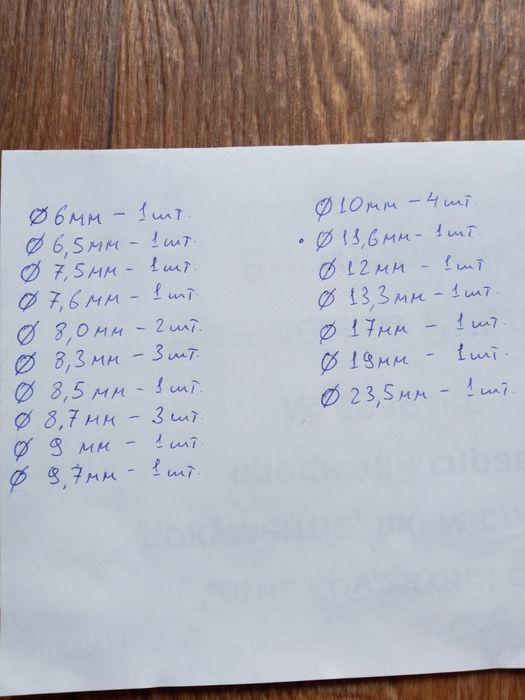 Ø 6мм – 1шт.
Ø 6,5мм – 1шт.
Ø 7,5мм – 1шт.
Ø 7,6мм – 1шт.
Ø 8,0мм – 2шт.
Ø 8,3мм – 3шт.
Ø 8,5мм – 1шт.
Ø 8,7мм – 3шт.
Ø 9 мм – 1шт.
Ø 9,7мм – 1шт.
Ø 10мм – 4шт.
Ø 11,6мм – 1шт.
Ø 12мм – 1шт.
Ø 13,3мм – 1шт.
Ø 17мм – 1шт.
Ø 19мм – 1шт.
Ø 23,5мм – 1шт.